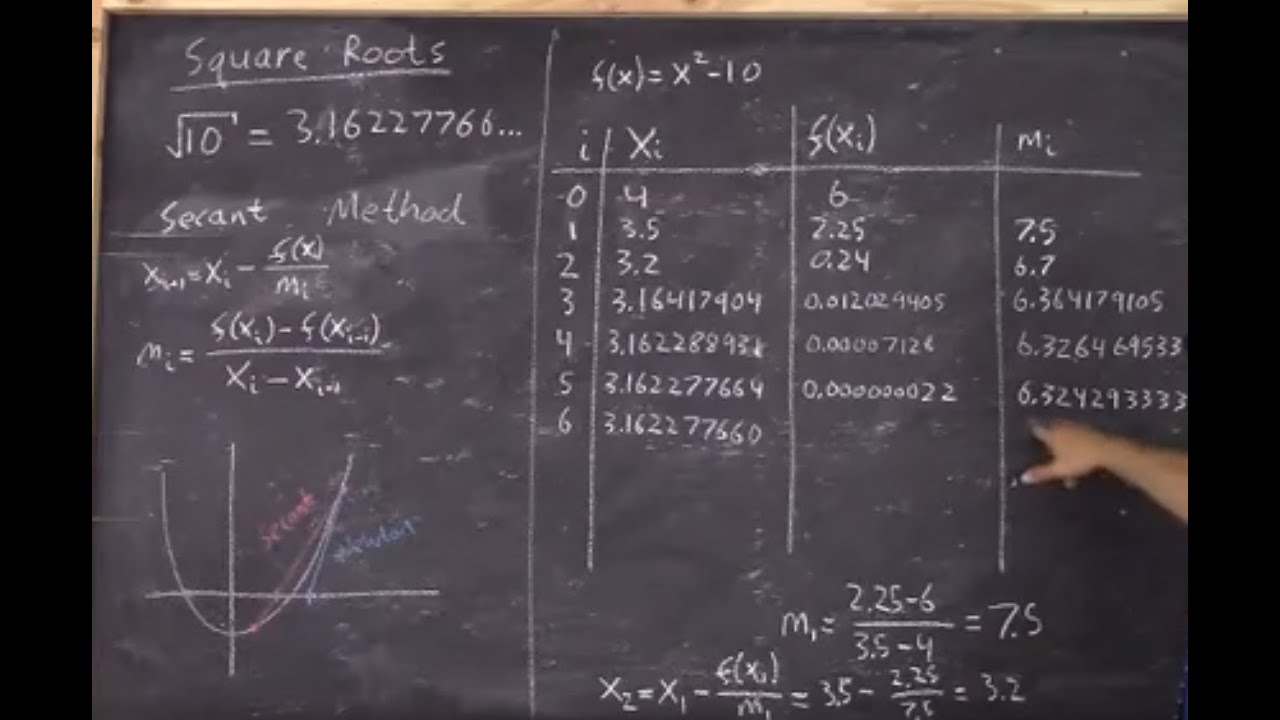 Square Roots
√10 = 3.16227766...
Secant Method
Xi+1 = Xi - f(x)/mi
mi = f(Xi) - f(Xi-1) / Xi - Xi-1
secant
Newton
f(x) = x²-10
i Xi f(Xi) mi
0 4 6
1 3.5 2.25 7.5
2 3.2 0.24 6.7
3 3.16417904 0.012029405 6.364179105
4 3.162288931 0.00007128 6.326469533
5 3.162277664 0.000000022 6.324293333
6 3.162277660
m1 = 2.25-6 / 3.5-4 = 7.5
X2 = X1 - f(x1)/m1 = 3.5 - 2.25/7.5 = 3.2